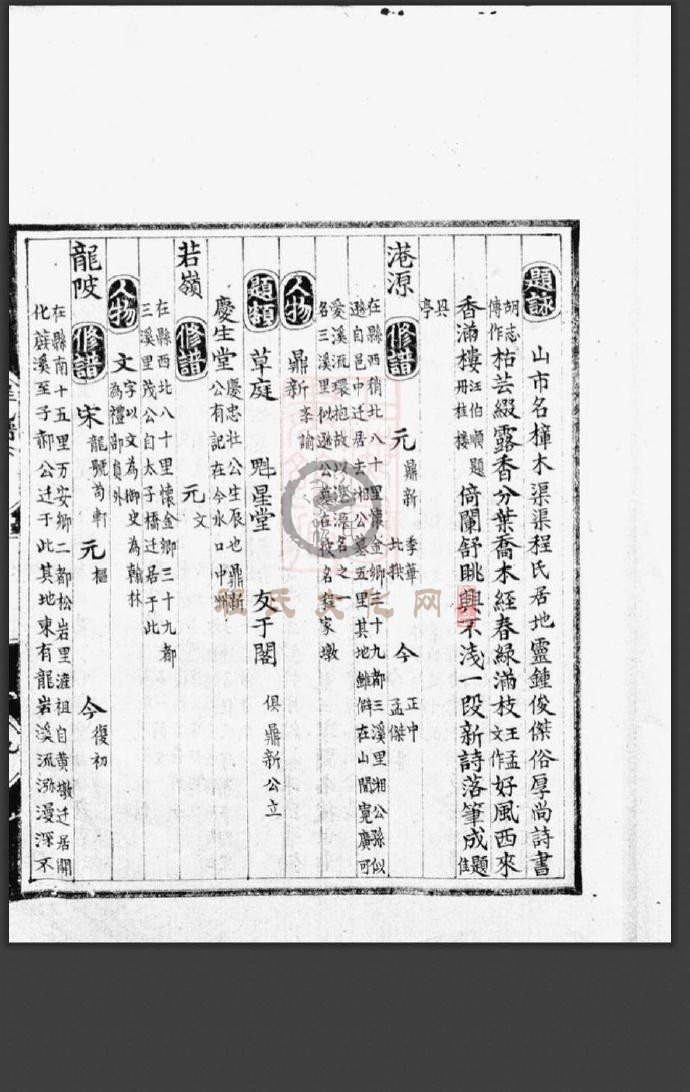 題詠 山市名樟木渠渠程氏居地靈鍾俊傑俗厚尚詩書
胡志傳作 枯芸綴露香分葉喬木經春綠滿枝 王孟文作 好風西來
香滿樓 汪伯順題丹桂樓 倚闌舒眺興不淺一段新詩落筆成 題佳
亭
港源 修譜 元 鼎新 季華 今 正中 孟傑
在縣西稍北八十里懷金鄉三十九都三溪里湘公孫似
遜自邑中迁居去湘公墓五里其地雖僻在山間寬廣可
愛溪流環抱故以港源名之一
名三溪里似遜公墓在彼名程家墩
人物 鼎新 李諭
題額 草庭 魁星堂 友于閣 俱鼎新公立
慶生堂 慶忠壮公生辰也鼎新公有記在今水口中州
若嶺 修譜 元 文
在縣西北八十里懷金鄉三十九都
三溪里茂公自太子橋迁居于此
人物 文 字以文為御史為翰林為禮部員外
龍陂 修譜 宋 龍號苟軒 元 樞 今 復初
在縣南十五里万安鄉二都松岩里淮祖自黄墩迁居開
化蔴溪至子郝公迁于此其地東有龍岩溪流瀰漫深不
程氏文化网